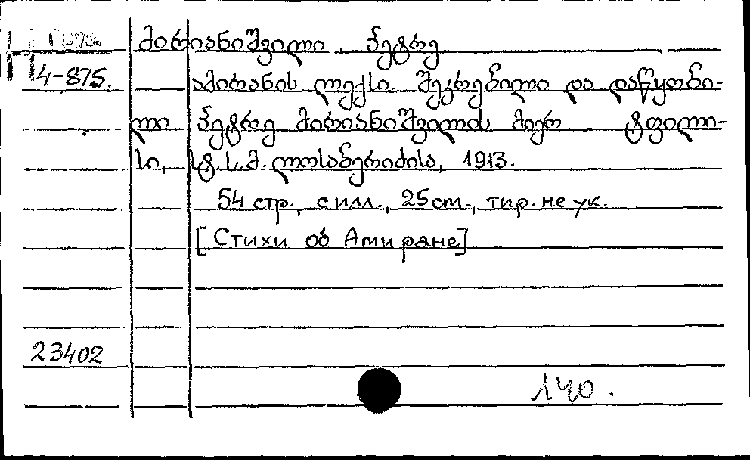 მირიანიშვილი პეტრე
4-875.
ამირანის ლექსი შეკრებილი და დაწყობი-
ლი პეტრე მირიანიშვილის მიერ ტფილი-
სი, სტ. ს. მ. ლოსაბერიძისა, 1913.
54 стр., с илл., 25 см., тир. не ук.
[Стихи об Амиране]
23402
140.